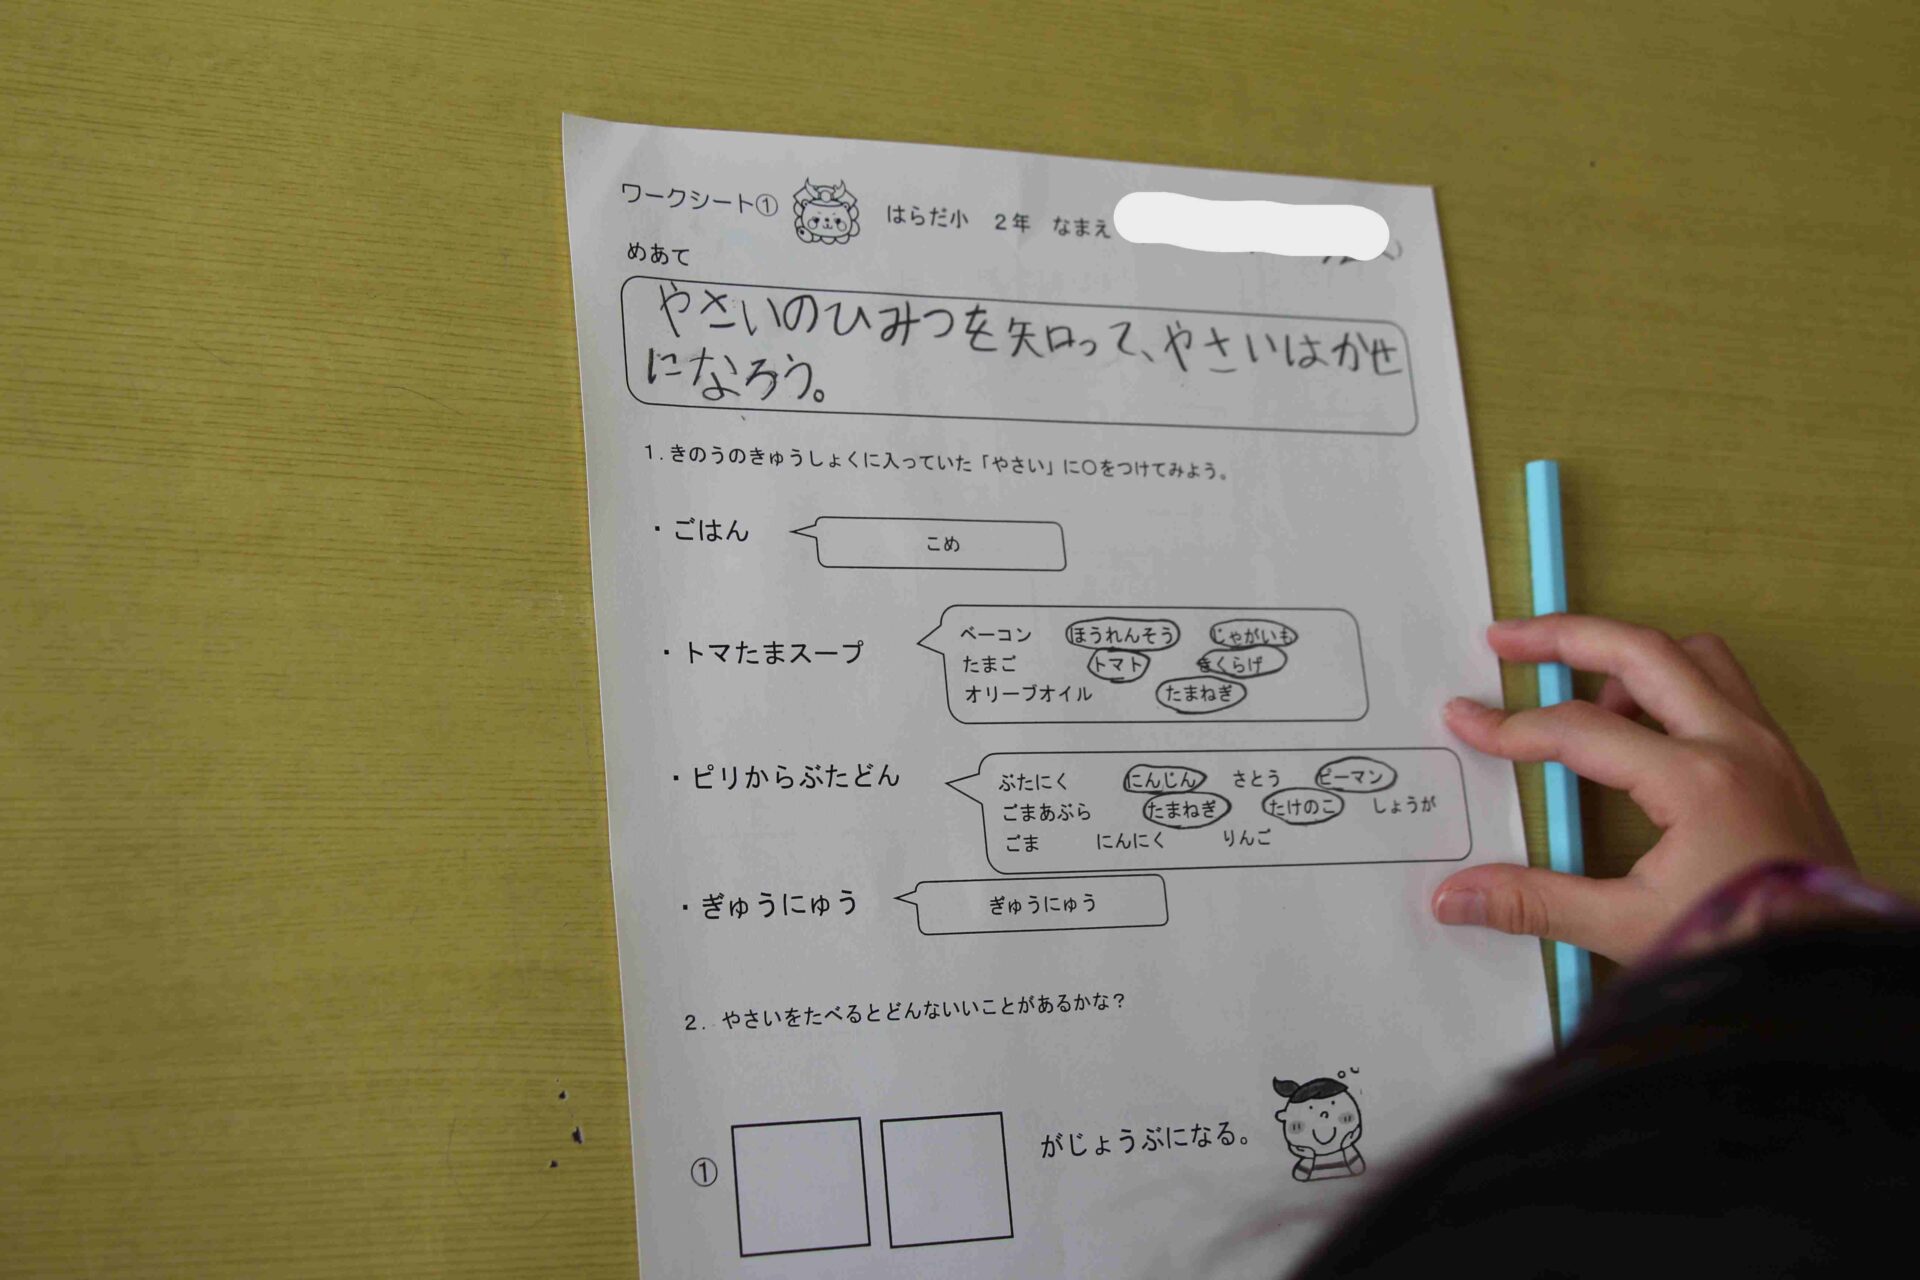 ワークシート① はらだ小 2年 なまえ
めあて
やさいのひみつを知って、やさいはかせ
になろう。
1.きのうのきゅうしょくに入っていた「やさい」に〇をつけてみよう。
・ごはん こめ
・トマたまスープ
ベーコン ほうれんそう じゃがいも
たまご トマト きくらげ
オリーブオイル たまねぎ
・ピリからぶたどん
ぶたにく にんじん さとう ピーマン
ごまあぶら たまねぎ たけのこ しょうが
ごま にんにく りんご
・ぎゅうにゅう ぎゅうにゅう
2. やさいをたべるとどんないいことがあるかな？
① がじょうぶになる。